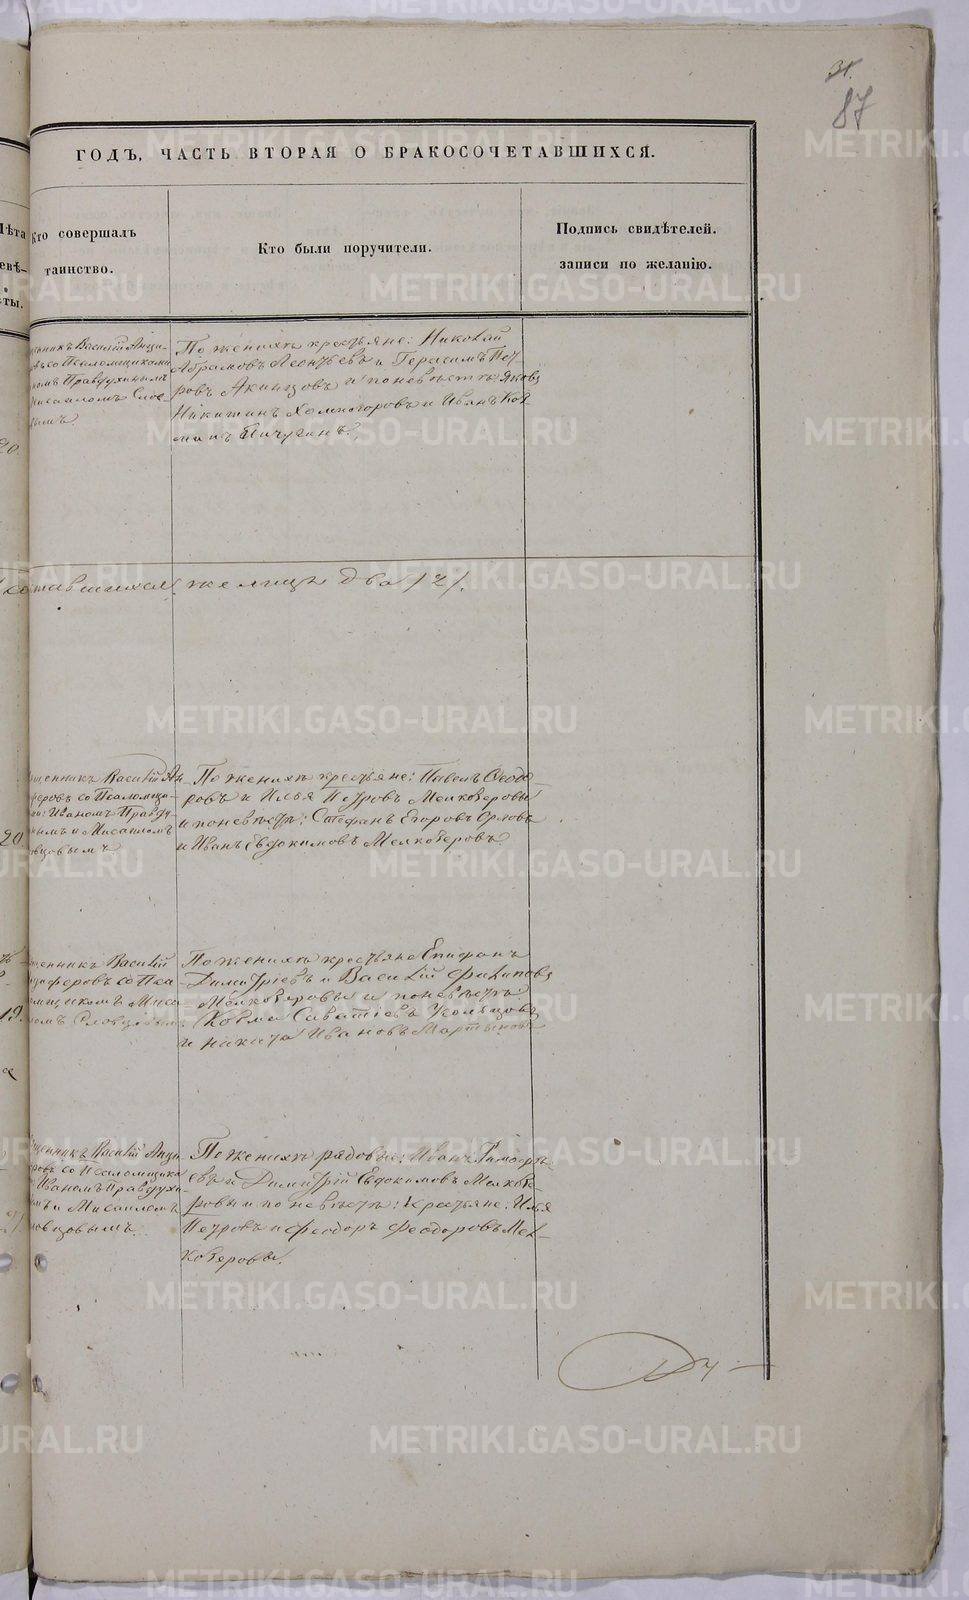 31.
87
ГОДЪ, ЧАСТЬ ВТОРАЯ О БРАКОСОЧЕТАВШИХСЯ.
Лѣта
Кто совершалъ
таинство.
Кто были поручители.
Подпись свидѣтелей.
записи по желанію.
По женихѣ крестьяне: Николай
Абрамовъ Леонтьевъ и Герасимъ Пет-
ровъ Акинцовъ и по невѣстѣ Яковъ
Никитинъ Холмогоровъ и Иванъ Коз-
минъ Пичугинъ.
же лицъ два /2/.
щенникъ Василій Ан
феровъ со Псаломщи-
Иваномъ Правду-
нымъ и Мисаиломъ
20
По женихѣ крестьяне: Павелъ Ѳеодо
ровъ и Илья Петровъ Мелкозеровы
и по невѣстѣ: Стефанъ Егоровъ Орловъ
и Иванъ Евдокимовъ Мелкозеровъ
щенникъ Василій
циферовъ со Пса
ломщикомъ Миса
19.
По женихѣ крестьяне Епифанъ
Димитріевъ и Василій Филиповъ
Мелкозеровы и по невѣстѣ
Козма Саватіевъ Усольцовъ
и Никита Ивановъ Мартыновъ
щенникъ Василій Анци
ровъ со Псаломщика
Иваномъ Правдухи-
мъ и Мисаиломъ
ловцовымъ.
По женихѣ рядовые: Иванъ Тимоѳѣ
евъ и Димитрій Евдокимовъ Мелкозе
ровы и по невѣстѣ: крестьяне: Илья
Петровъ и Феодоръ Феодоровъ Мел-
козеровы.
METRIKI.GASO-URAL.RU